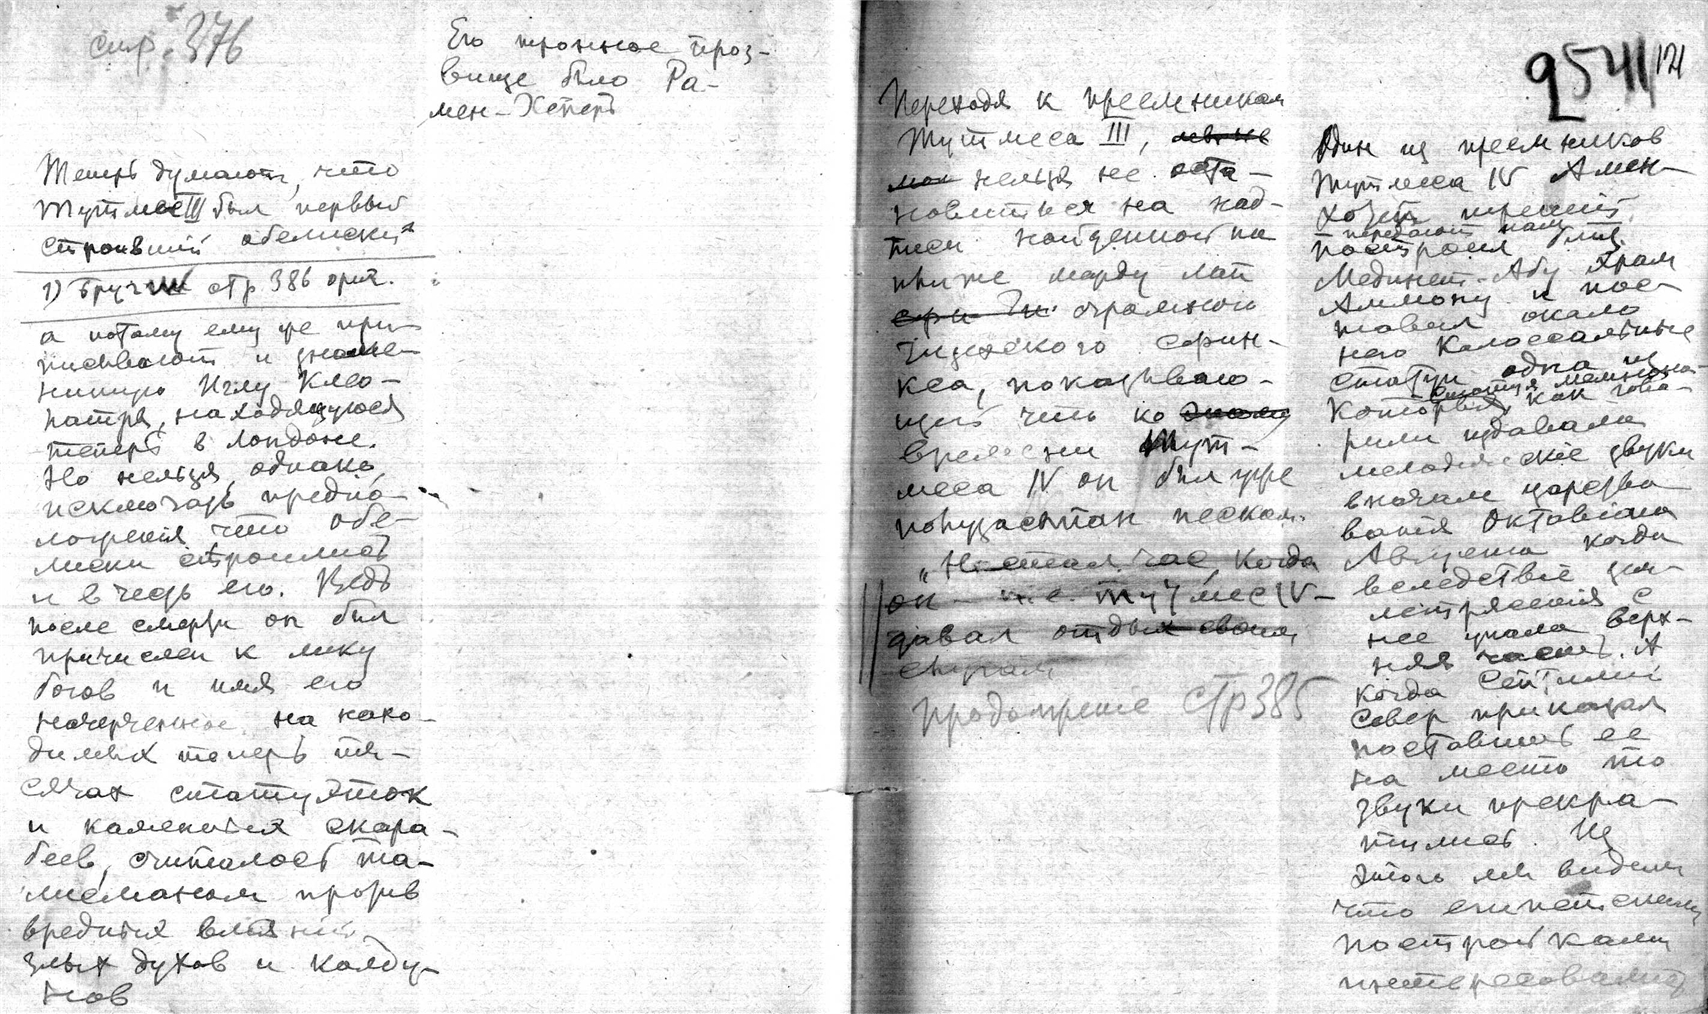 стр. 376
Его тронное проз-
вище было Ра-
мен-Хеперъ
Теперь думают, что
Тутмес III был первый
строивший обелиски
1) Бругш стр 386 ориг.
а потому ему же при-
писывают и знаме-
нитую Иглу Клео-
патры, находящуюся
теперь в Лондоне.
Но нельзя, однако,
исключать предпо-
ложения что обе-
лиски строились
и в честь его. Ведь
после смерти он был
причислен к лику
богов и имя его
начерченное на нахо-
димых теперь ты-
сячах статуэток
и каменных скара-
беев, считалось та-
лисманом против
вредных влияний
злых духов и колду-
нов
9541 121
Переходя к преемникам
Тутмеса III,
нельзя не оста-
новиться на над-
писи найденной на
ниже между лап
огромного
Гизехского сфин-
кса, показываю-
щей что ко
времени Тут-
меса IV он был уже
полузасыпан песком.
„Настал час, когда
он т.е. Тутмес IV
давал отдых своим
слугам
Продолжение стр 385
Один из преемников
Тутмеса IV Амен-
хотеп третий,
передают нам
построил близ
Мединет-Абу храм
Аммону и пос-
тавил около
него колоссальные
статуи одна из
статуя Мемнона
которых, как гово-
рили издавала
мелодические звуки
вначале царство-
вания Октавиана
Августа когда
вследствие зем-
летрясения с
нее упала верх-
няя часть. А
когда Септимий
Север приказал
поставить ее
на место то
звуки прекра-
тились. Из
этого мы видим
что египетскими
постройками
интересовались